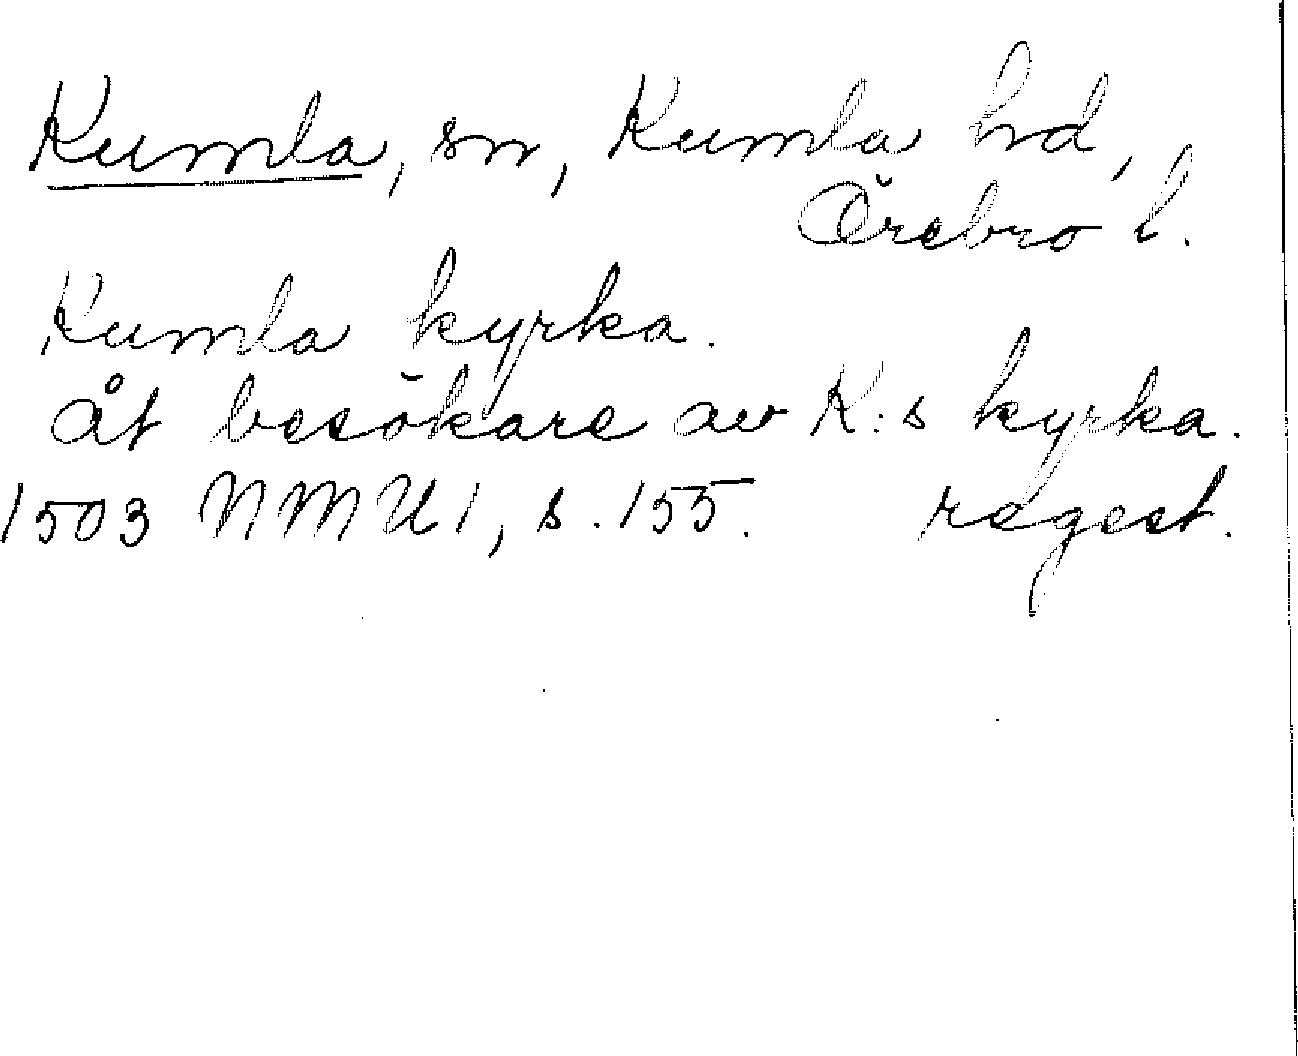 Kumla, sn, Kumla hd,
Örebro l.
Kumla kyrka.
åt besökare av K:s kyrka.
1503 NMU 1, s. 155. regest.